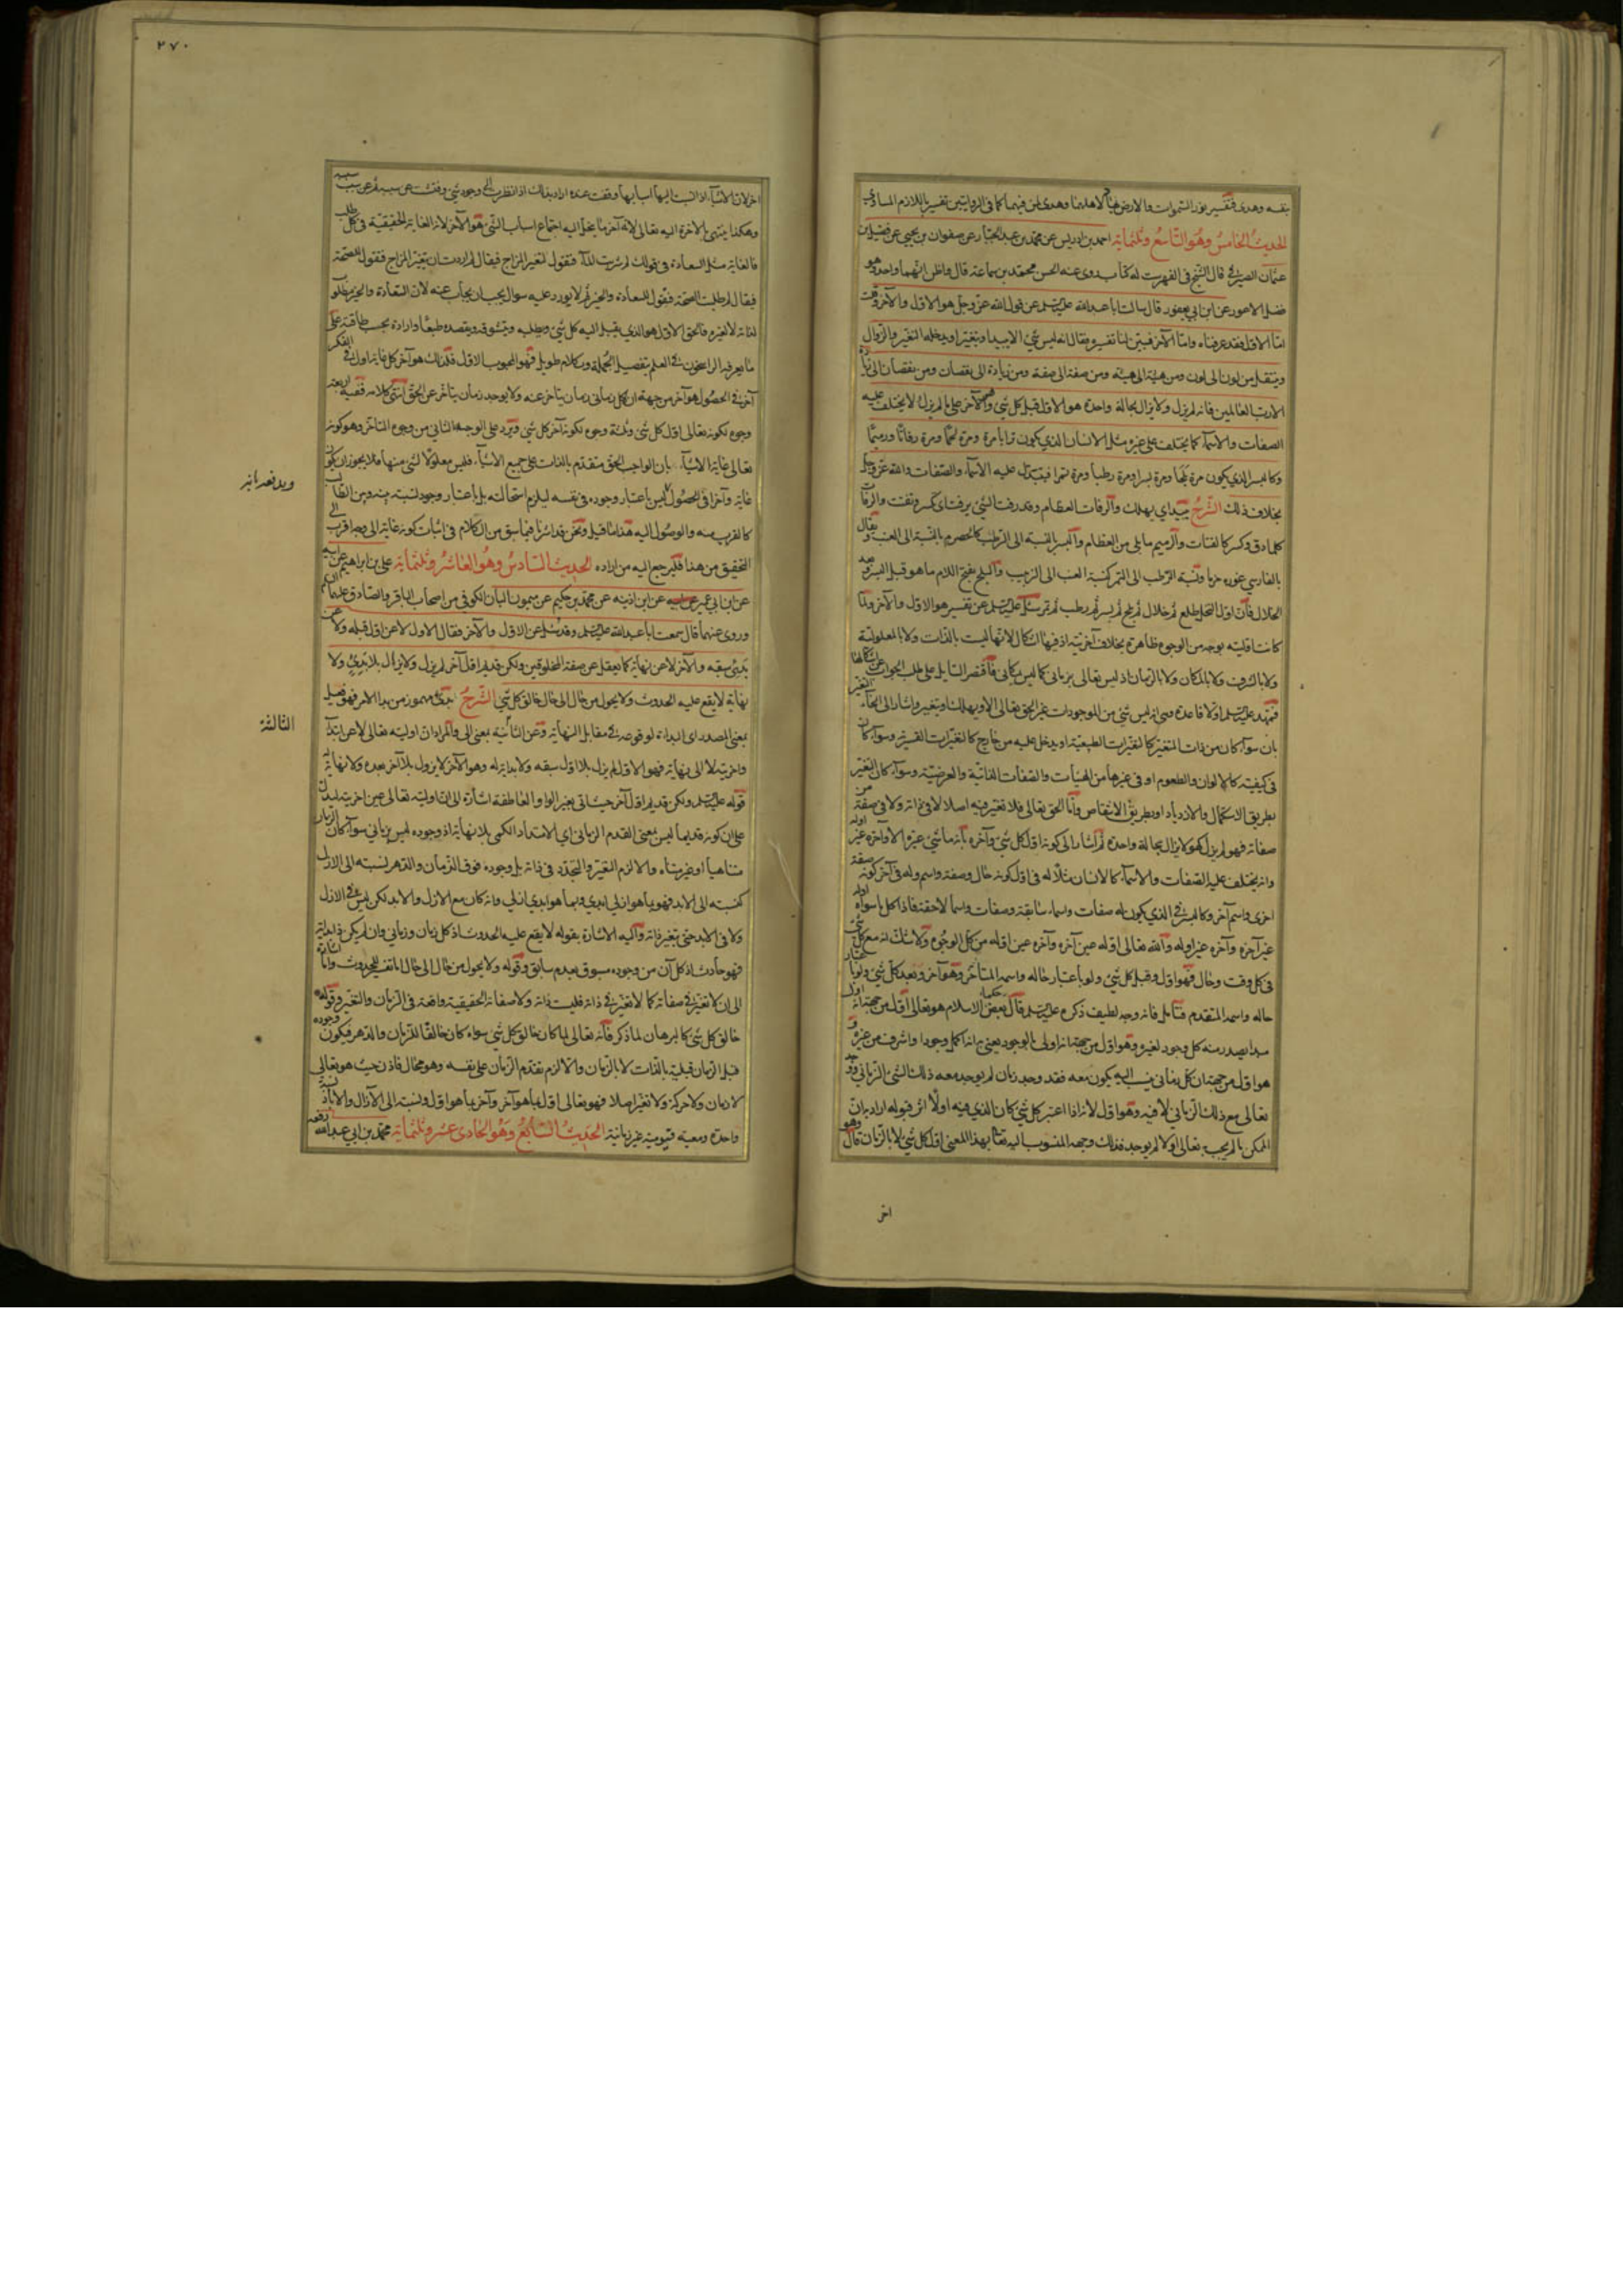 بنفسه وهدى فتفسير نور السموات والارض بهاد لاهلها وهدى لمن فيهما كما فى الروايتين تفسير باللازم المساوى
الحديث الخامس وهو التاسع وثلثمائة احمد بن ادريس عن محمد بن عبد الجبار عن صفوان بن يحيى عن فضيل بن
عثمان الصيرفى قال الشيخ فى الفهرست له كتاب روى عنه الحسن بن محمد بن سماعة قال واظن انهما واحد وهو
فضيل الاعور عن ابن ابى يعفور قال سالت ابا عبد الله عليه السلم عن قول الله عز وجل هو الاول والآخر وقلت
اما الاول فقد عرفناه واما الآخر فبين لنا تفسيره فقال انه ليس شئ الا يبيد او يتغير او يدخله التغير والزوال
وينتقل من لون الى لون ومن هيئة الى هيئة ومن صفة الى صفة ومن زيادة الى نقصان ومن نقصان الى زيادة
الا رب العالمين فانه لم يزل ولا يزال بحالة واحدة هو الاول قبل كل شئ وهو الآخر على ما لم يزل لا يختلف عليه
الصفات والاسماء كما يختلف على غيره مثل الانسان الذى يكون ترابا مرة ومرة لحما ومرة رفاتا ورميما
وكالبسر الذى يكون مرة بلحا ومرة بسرا ومرة رطبا ومرة تمرا فيتبدل عليه الاسماء والصفات والله عز وجل
بخلاف ذلك الشرح يبيد اى يهلك والرفات العظام وقد رفت الشئ يرفت اى تكسر وتفتت والرفات
كلما دق وكسر كالفتات والرميم ما بلى من العظام والبسر بالنسبة الى الرطب كالحصرم بالنسبة الى العنب ويقال
بالفارسى غوره خرما ونسبة الرطب الى التمر كنسبة العنب الى الزبيب والبلح بفتح اللام ما هو قبل البسر وبعد
الخلال فان اول النخل طلع ثم خلال ثم بلح ثم بسر ثم رطب ثم تمر سئل عليه السلم عن تفسير هو الاول والآخر ولما
كانت اوليته بوجه من الوجوه ظاهرة بخلاف آخريته اذ فيها اشكال لانها ليست بالذات ولا بالمعلولية
ولا بالشرف ولا بالمكان ولا بالزمان اذ ليس تعالى بزمانى كما ليس بمكانى فاقتصر السائل على طلب الجواب عن اشكالها
فمهد عليه السلم اولا قاعدة وهى انه ليس شئ من الموجودات غير الحق تعالى الا ويهلك او يتغير واشار الى انحاء التغير
بان سواء كان من ذات المتغير كالتغيرات الطبيعية او يدخل عليه من خارج كالتغيرات القسرية وسواء كان
فى كيفيته كالالوان والطعوم او فى غيرها من الهيئات والصفات الذاتية والعرضية وسواء كان التغير
بطريق الاستكمال والازدياد او بطريق الانتقاص واما الحق تعالى فلا تغير فيه اصلا لا فى ذاته ولا فى صفة من
صفاته فهو لم يزل كهو لا يزال بحالة واحدة ثم اشار الى كونه اول كل شئ وآخره بانه ما شئ غيره الا وآخره غير اوله
وانه يختلف عليه الصفات والاسماء كالانسان مثلا له فى اول كونه حال وصفة واسم وله فى آخر كونه صفة
اخرى واسم آخر وكالبسر الذى يكون له صفات واسماء سابقة وصفات واسماء لاحقة فاذا كل ما سواه اوله
غير آخره وآخره غير اوله والله تعالى اوله عين آخره وآخره عين اوله من كل الوجوه ولا شك انه مع كل شئ
فى كل وقت وحال فهو اول وقبل كل شئ ولو باعتبار حاله واسمه المتأخر وهو آخر وبعد كل شئ ولو باعتبار
حاله واسمه المتقدم فتأمل فانه وجه لطيف ذكره عليه السلم قال بعض حكماء الاسلام هو تعالى اول من جهة انه
مبدا يصدر منه كل وجود لغيره وهو اول من جهة انه اولى بالوجود يعنى انه اكمل وجودا واشرف من غيره و
هو اول من جهة ان كل زمانى ينسب اليه يكون معه فقد وجد زمان لم يوجد معه ذلك الشئ الزمانى ووجد
تعالى مع ذلك الزمانى لا فيه وهو اول لانه اذا اعتبر كل شئ كان الذى فيه اولا اثر قبوله اراد بان
الممكن ما لم يجب به تعالى اولا لم يوجد فذلك وجهه المنسوب اليه تعالى بهذا المعنى اول كل شئ لا بالزمان قال وهو
اخر
٢٧٠
اخر لان الاشياء اذا نسبت اليها اسبابها وقفت عنده اراد بذلك اذا نظرت الى وجود شئ وفتشت عن سببه ثم عن سبب سببه
وهكذا ينتهى بالاخرة اليه تعالى لانه آخر ما ينحل اليه اجتماع اسباب الشئ هو الآخر لانه الغاية الحقيقية فى كل طلب
فالغاية مثل السعادة فى قولك لم شربت الدواء فتقول لتغير المزاج فيقال لم اردت ان يتغير المزاج فتقول للصحة
فيقال لم طلبت الصحة فتقول للسعادة والخير ثم لا يورد عليه سوال يجب ان يجاب عنه لان السعادة والخير مطلوب
لذاته لا لغيره فالحق الاول هو الذى يقبل اليه كل شئ ويطلبه ويتشوقه ويقصده طبعا وارادة بحسب طاقته على
ما يعرفه الراسخون فى العلم بتفصيل الجملة وبكلام طويل فهو المحبوب الاول فلذلك هو آخر كل غاية اول فى الفكر
آخر فى الحصول هو آخر من جهة ان كل زمانى زمان يتأخر عنه ولا يوجد زمان يتأخر عن الحق انتهى كلامه ففيه اربعة
وجوه لكونه تعالى اول كل شئ وثلثة وجوه لكونه آخر كل شئ ويرد على الوجه الثانى من وجوه المتأخر وهو كونه
تعالى غاية الاشياء بان الواجب الحق متقدم بالذات على جميع الاشياء فليس معلولا لشئ منها فلا يجوز ان يكون
ويدفعه انه
غاية وآخرا فى الحصول ليس باعتبار وجوده فى نفسه ليلزم استحالته بل باعتبار وجود نسبة بينه وبين الطالب
كالقرب منه والوصول اليه هذا ما قيل ونحن قد اشرنا فيما سبق من الكلام فى اثبات كونه غاية الى وجه اقرب الى
التحقيق من هذا فليرجع اليه من اراده الحديث السادس وهو العاشر وثلثمائة على بن ابراهيم عن ابيه
عن ابن ابى عمير عن ابن اذينة عن محمد بن حكيم عن ميمون البان الكوفى من اصحاب الباقر والصادق عليهما السلم
وروى عنهما قال سمعت ابا عبد الله عليه السلم وقد سئل عن الاول والآخر فقال الاول لا عن اول قبله ولا عن
بدئ سبقه والآخر لا عن نهاية كما يعقل عن صفة المخلوقين ولكن قديم اول آخر لم يزل ولا يزال بلا بدئ ولا
نهاية لا يقع عليه الحدوث ولا يحول من حال الى حال خالق كل شئ الشرح البدئ مهموز من بدا الامر فهو فعيل
الثالثة
بمعنى المصدر اى البداءة لوقوعه فى مقابل النهاية وعن الثانية بمعنى الى والمراد ان اوليته تعالى لا عن ابتداء
واخريته لا الى نهاية فهو الاول لم يزل بلا اول سبقه ولا بداية له وهو الآخر لا يزول بلا آخر بعده ولا نهاية له
قوله عليه السلم ولكن قديم اول آخر حيث اتى بغير الواو العاطفة اشارة الى ان اوليته تعالى عين اخريته ليدل
على ان كونه قديما ليس بمعنى القدم الزمانى اى الامتداد الكمى بلا نهاية اذ وجوده ليس بزمانى سواء كان الزمان
متناهيا او غير متناه والا لزم التغير والتجدد فى ذاته بل وجوده فوق الزمان والدهر نسبته الى الازل
كنسبته الى الابد فهو بما هو ازلى ابدى وبما هو ابدى ازلى وانه كان مع الازل والابد لكن ليس فى الازل
ولا فى الابد حتى يتغير ذاته واليه الاشارة بقوله لا يقع عليه الحدوث اذ كل زمان وزمانى وان لم يكن له بداية
فهو حادث اذ كل آن من وجوده مسبوق بعدم سابق وقوله ولا يحول من حال الى حال اما تفسير للحدوث واما اشارة
الى ان لا تغير فى صفاته كما لا تغير فى ذاته فليست ذاته ولا صفاته الحقيقية واقعة فى الزمان والتغير وقوله
خالق كل شئ كالبرهان لما ذكر فانه تعالى لما كان خالق كل شئ سواه كان خالقا للزمان والدهر فيكون وجوده
قبل الزمان قبلية بالذات لا بالزمان والا لزم تقدم الزمان على نفسه وهو محال فاذن حيث هو تعالى
لا زمان ولا حركة ولا تغير اصلا فهو تعالى اول بما هو آخر وآخر بما هو اول ونسبته الى الآزال والآباد نسبة
واحدة ومعية قيومية غير زمانية الحديث السابع وهو الحادى عشر وثلثمائة محمد بن ابى عبد الله رفعه